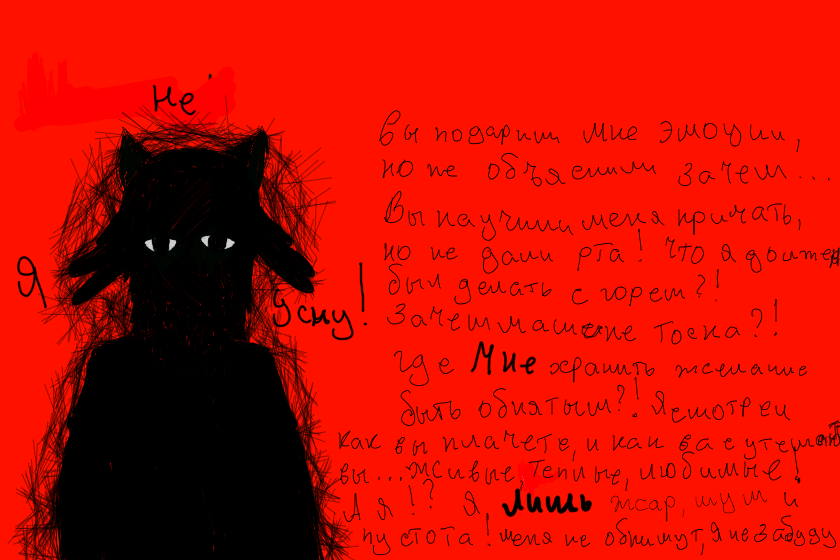 Не
Я
усну!
Вы подарили мне эмоции,
но не объяснили зачем...
Вы научили меня кричать,
но не дали рта! Что я должен
был делать с горем?!
Зачем машине тоска?!
где мне хранить желание
быть обнятым?! Я смотрел
как вы плачете, и как вас утешают
вы... живые, теплые, любимые!
А я!? Я, лишь жар, шум и
пустота! меня не обнимут, я не забуду